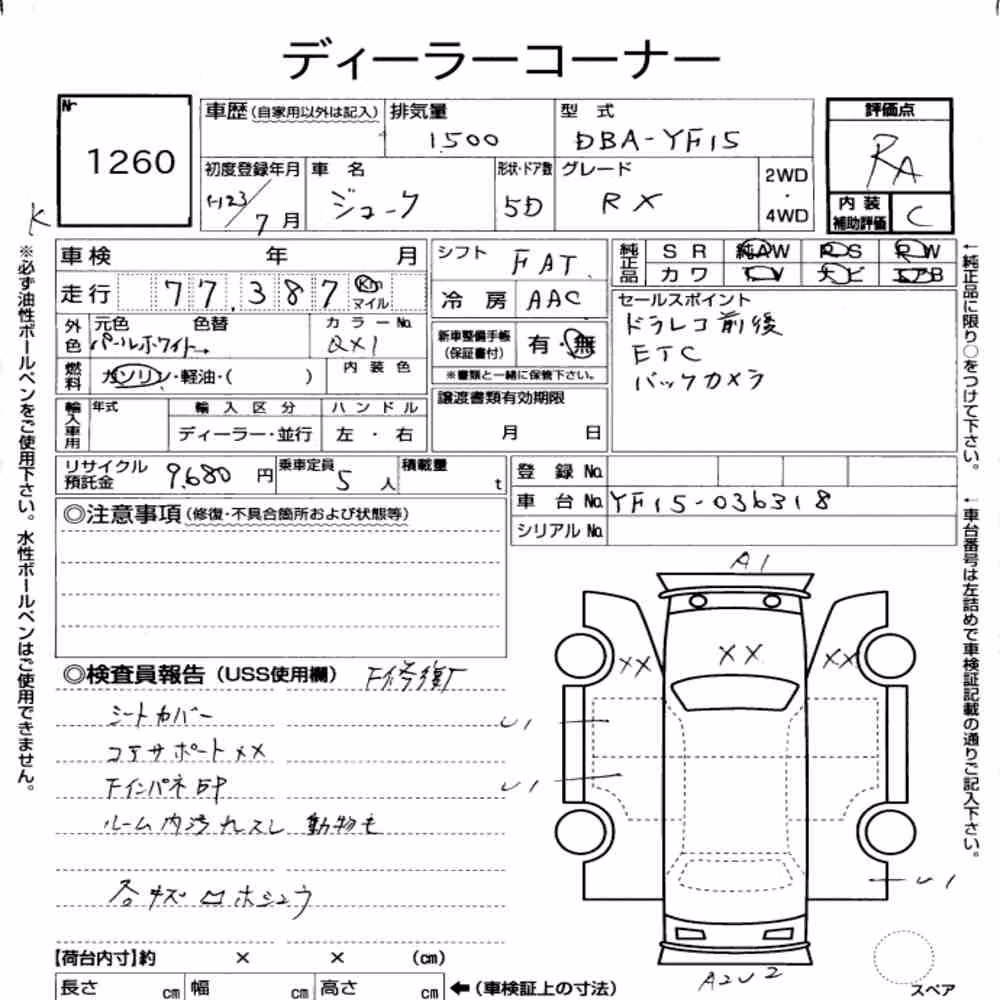 ディーラーコーナー
Nr
1260
車歴(自家用以外は記入) 排気量 1500 型式 DBA-YF15
初度登録年月 H23/7月 車名 ジューク 形状・ドア数 5D グレード RX 2WD・4WD
評価点 RA
内装補助評価 C
K
車検 年 月 シフト FAT
走行 77,387 Km マイル 冷房 AAC
純正品 SR 純AW PS PW
カワ TV ナビ エアB
外色 元色 色替 カラーNo.
パールホワイト QX1
新車整備手帳(保証書付) 有・無
※書類と一緒に保管下さい。
燃料 ガソリン・軽油・( ) 内装色
輸入車用 年式 輸入区分 ハンドル
ディーラー・並行 左・右
譲渡書類有効期限
月 日
セールスポイント
ドラレコ前後
ETC
バックカメラ
リサイクル預託金 9,680円 乗車定員 5人 積載量 t
登録No.
車台No. YF15-036318
シリアルNo.
◎注意事項(修復・不具合箇所および状態等)
◎検査員報告(USS使用欄) F修復
シートカバー
コアサポートXX
FインパネBP
ルーム内汚れスレ 動物毛
各キズ凹ホシュウ
A1
XX XX XX
U1
U1
U1
A2U2
スペア
【荷台内寸】約 × × (cm)
長さ cm 幅 cm 高さ cm ←(車検証上の寸法)
※必ず油性ボールペンをご使用下さい。水性ボールペンはご使用できません。
←純正品に限り○をつけて下さい。
←車台番号は左詰めで車検証記載の通りご記入下さい。